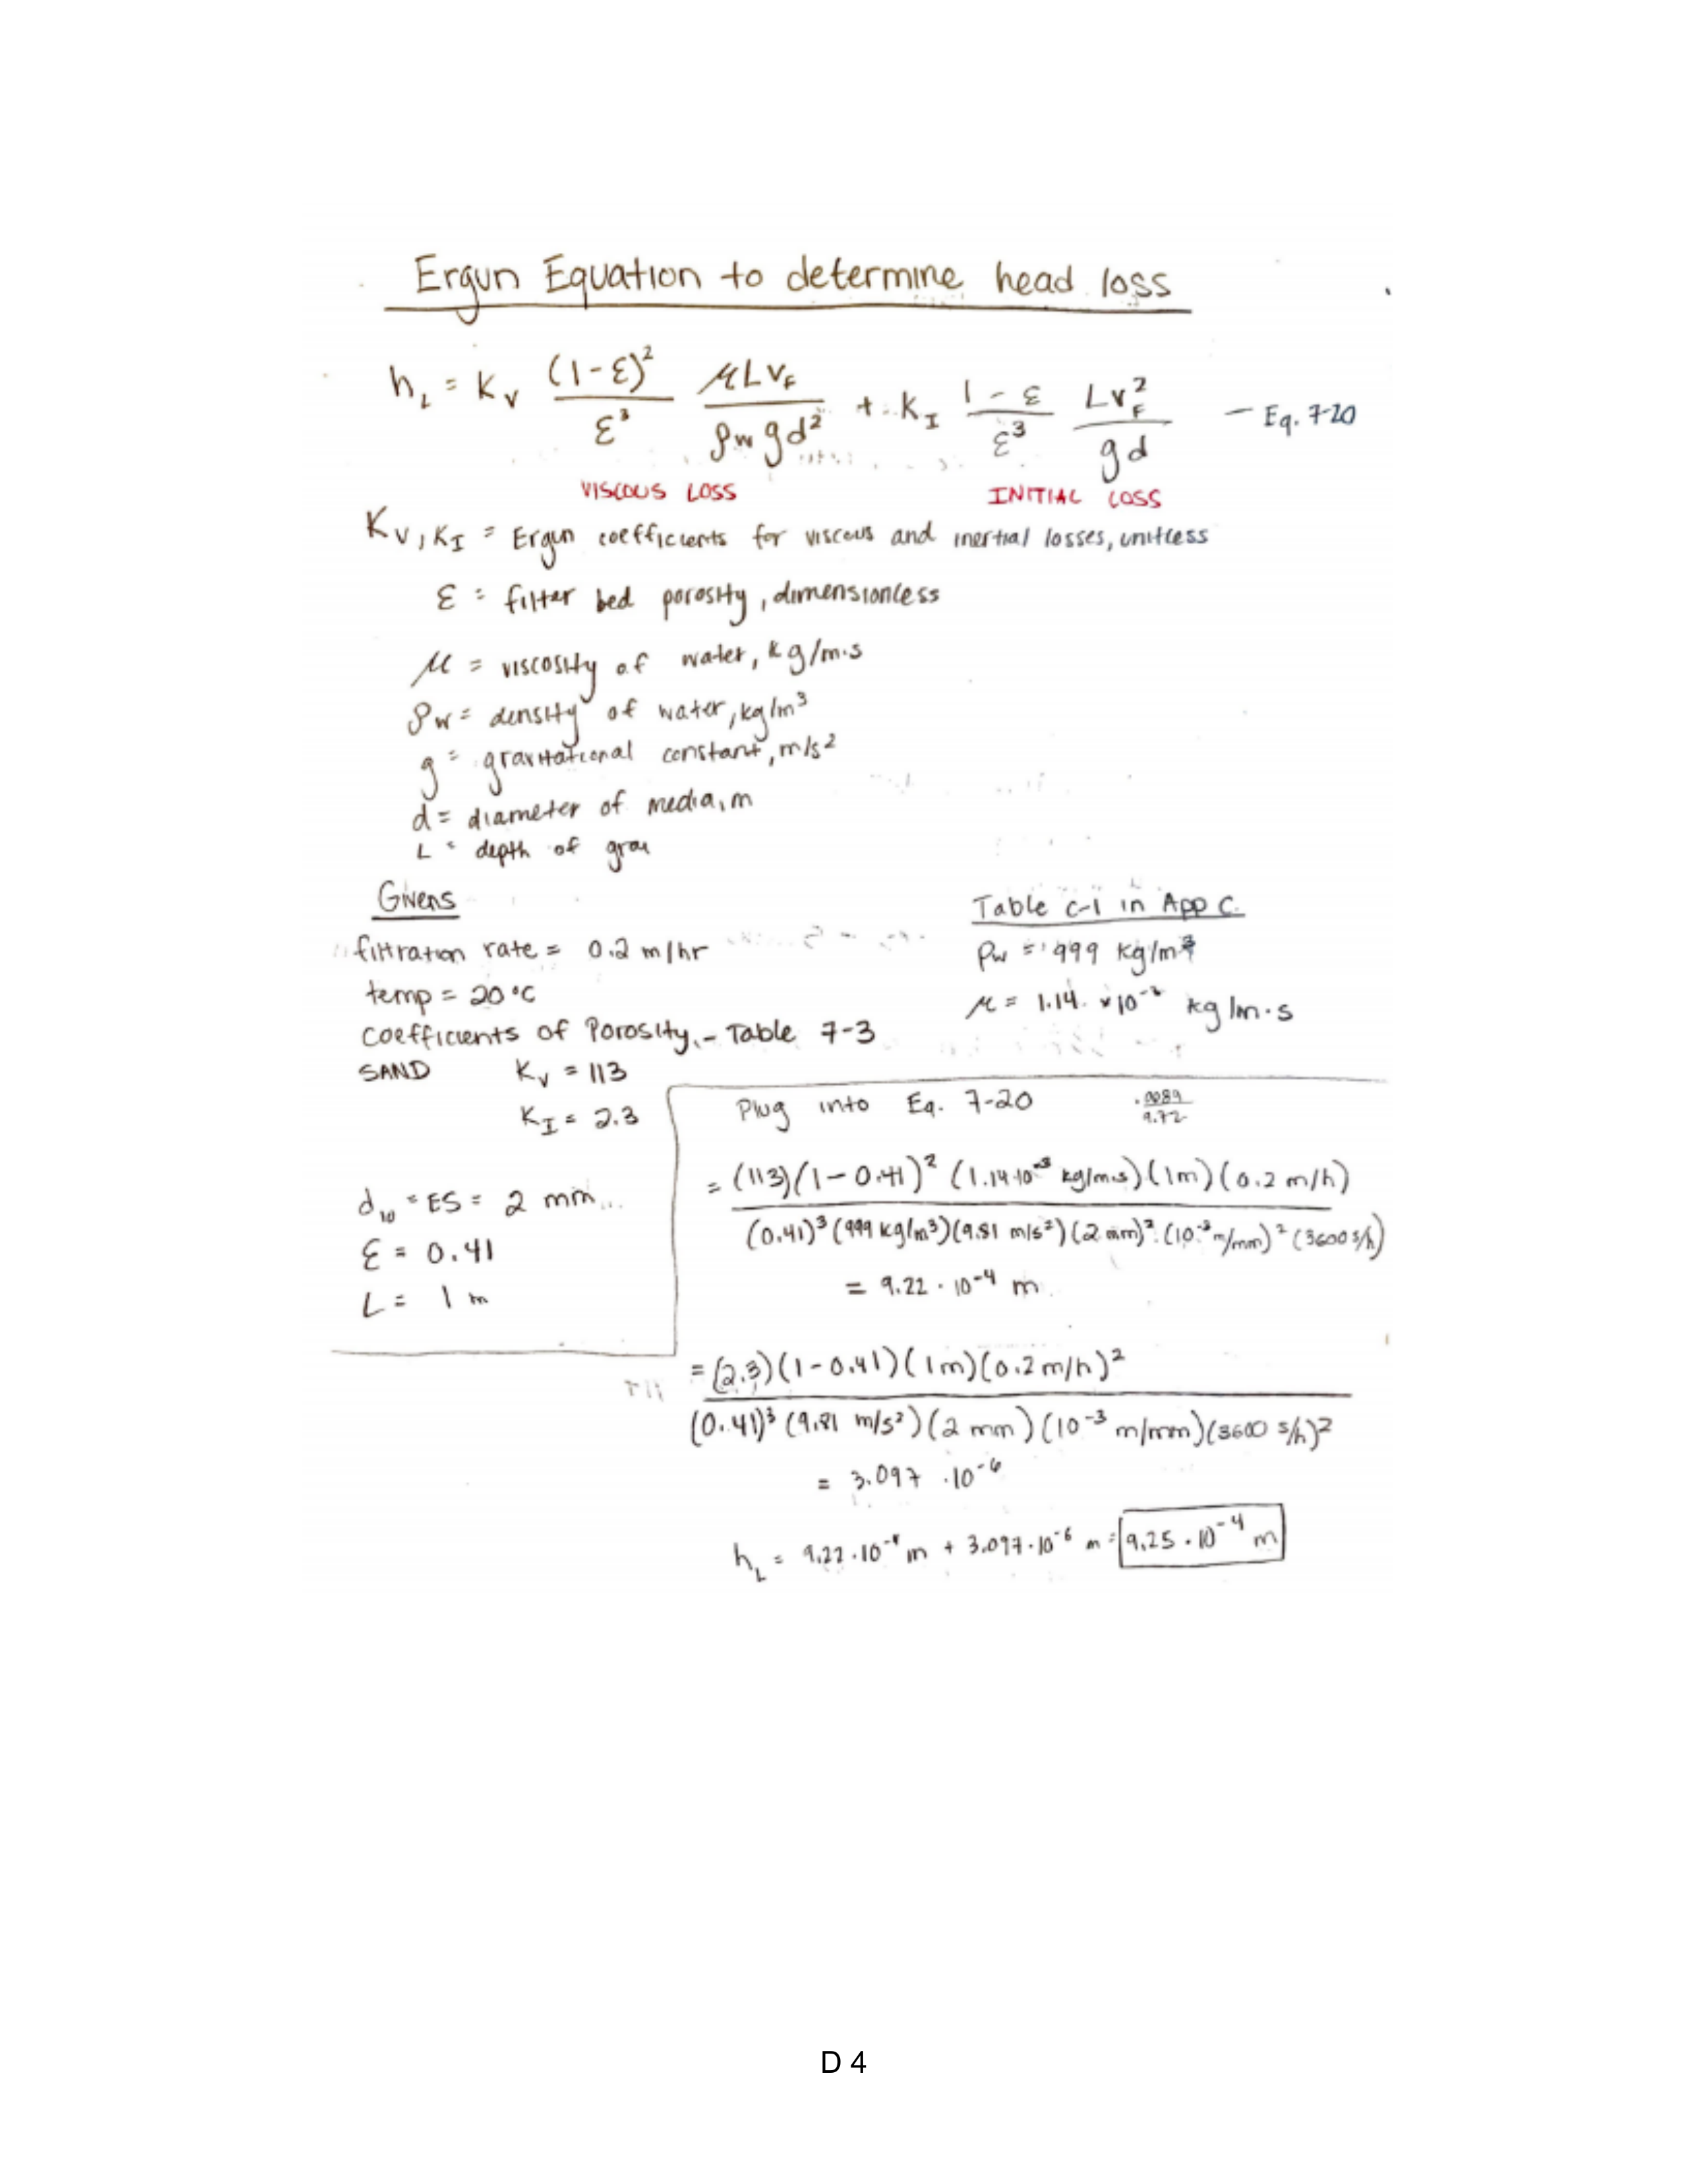 Ergun Equation to determine head loss
h_L = K_V (1-ε)²/ε³ μLv_F/ρ_w g d² + K_I 1-ε/ε³ Lv_F²/gd — Eq. 7-20
VISCOUS LOSS INITIAL LOSS
K_V, K_I = Ergun coefficients for viscous and inertial losses, unitless
ε = filter bed porosity, dimensionless
μ = viscosity of water, kg/m·s
ρw = density of water, kg/m³
g = gravitational constant, m/s²
d = diameter of media, m
L = depth of
Givens
filtration rate = 0.2 m/hr
temp = 20 °C
coefficients of Porosity - Table 7-3
SAND K_V = 113
K_I = 2.3
d_10 = ES = 2 mm
ε = 0.41
L = 1 m
Table C-1 in App C.
ρw = 999 kg/m³
μ = 1.14 × 10⁻³ kg/m·s
Plug into Eq. 7-20
.0089/9.72
= (113)(1-0.41)² (1.14·10⁻³ kg/m·s)(1m)(0.2 m/h)
(0.41)³ (999 kg/m³)(9.81 m/s²)(2 mm)² · (10⁻³ m/mm)² (3600 s/h)
= 9.22 · 10⁻⁴ m
= (2.3)(1-0.41)(1m)(0.2 m/h)²
(0.41)³ (9.81 m/s²)(2 mm)(10⁻³ m/mm)(3600 s/h)²
= 3.097 · 10⁻⁶
h_L = 9.22 · 10⁻⁴ m + 3.097 · 10⁻⁶ m = 9.25 · 10⁻⁴ m
D 4